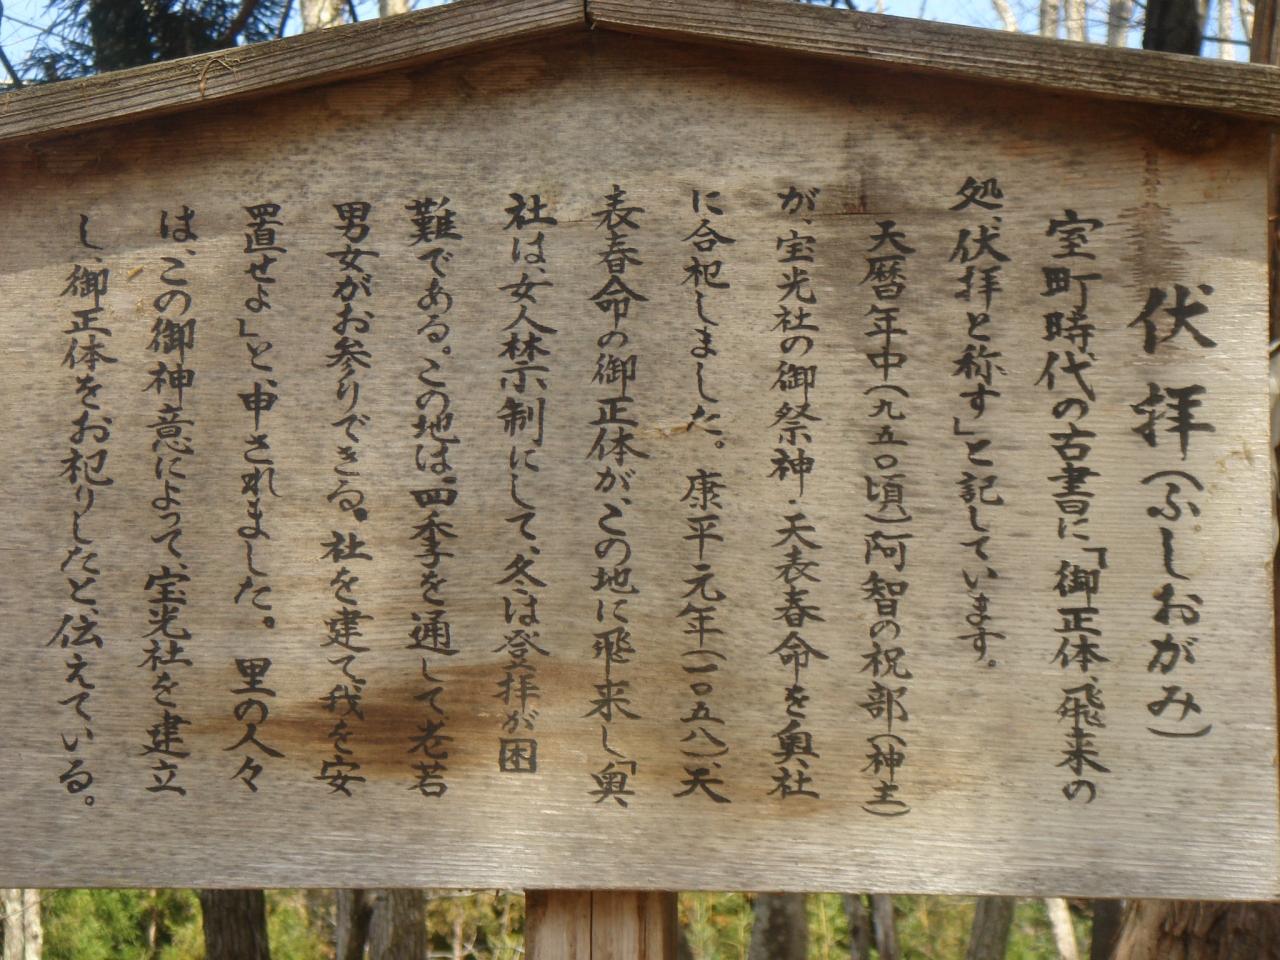 伏拝（ふしおがみ）
室町時代の古書に「御正体、飛来の
処、伏拝と称す」と記しています。
天暦年中（九五〇頃）阿智の祝部（神主）
が、宝光社の御祭神・天表春命を奥社
に合祀しました。康平元年（一〇五八）、天
表春命の御正体が、この地に飛来し「奥
社は、女人禁制にして、冬は登拝が困
難である。この地は、四季を通して老若
男女がお参りできる。社を建て、我を安
置せよ」と、申されました。里の人々
は、この御神意によって、宝光社を建立
し、御正体をお祀りしたと、伝えている。